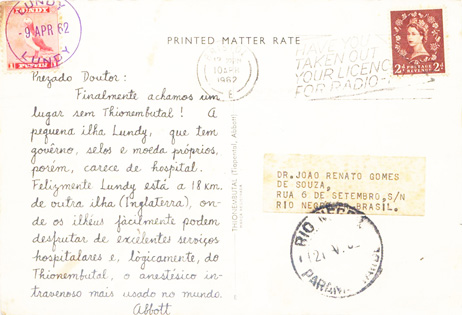 LUNDY
-9 APR 62
LUNDY
PRINTED MATTER RATE
10 APR
1962
E
HAVE YOU
TAKEN OUT
YOUR LICENCE
FOR RADIO
2d POSTAGE REVENUE 2d
Prezado Doutor:
Finalmente achamos um
lugar sem Thionembutal! A
pequena ilha Lundy, que tem
govêrno, selos e moeda próprios,
porém, carece de hospital.
Felizmente Lundy está a 18 km.
de outra ilha (Inglaterra), on-
de os ilhéus fàcilmente podem
desfrutar de excelentes serviços
hospitalares e, lògicamente, do
Thionembutal, o anestésico in-
travenoso mais usado no mundo.
Abbott
THIONEMBUTAL (Tiopental, Abbott)
DR. JOAO RENATO GOMES
DE SOUZA,
RUA 6 DE SETEMBRO, S/N
RIO NEGRO BRASIL.
RIO NEGRO
PARANÁ